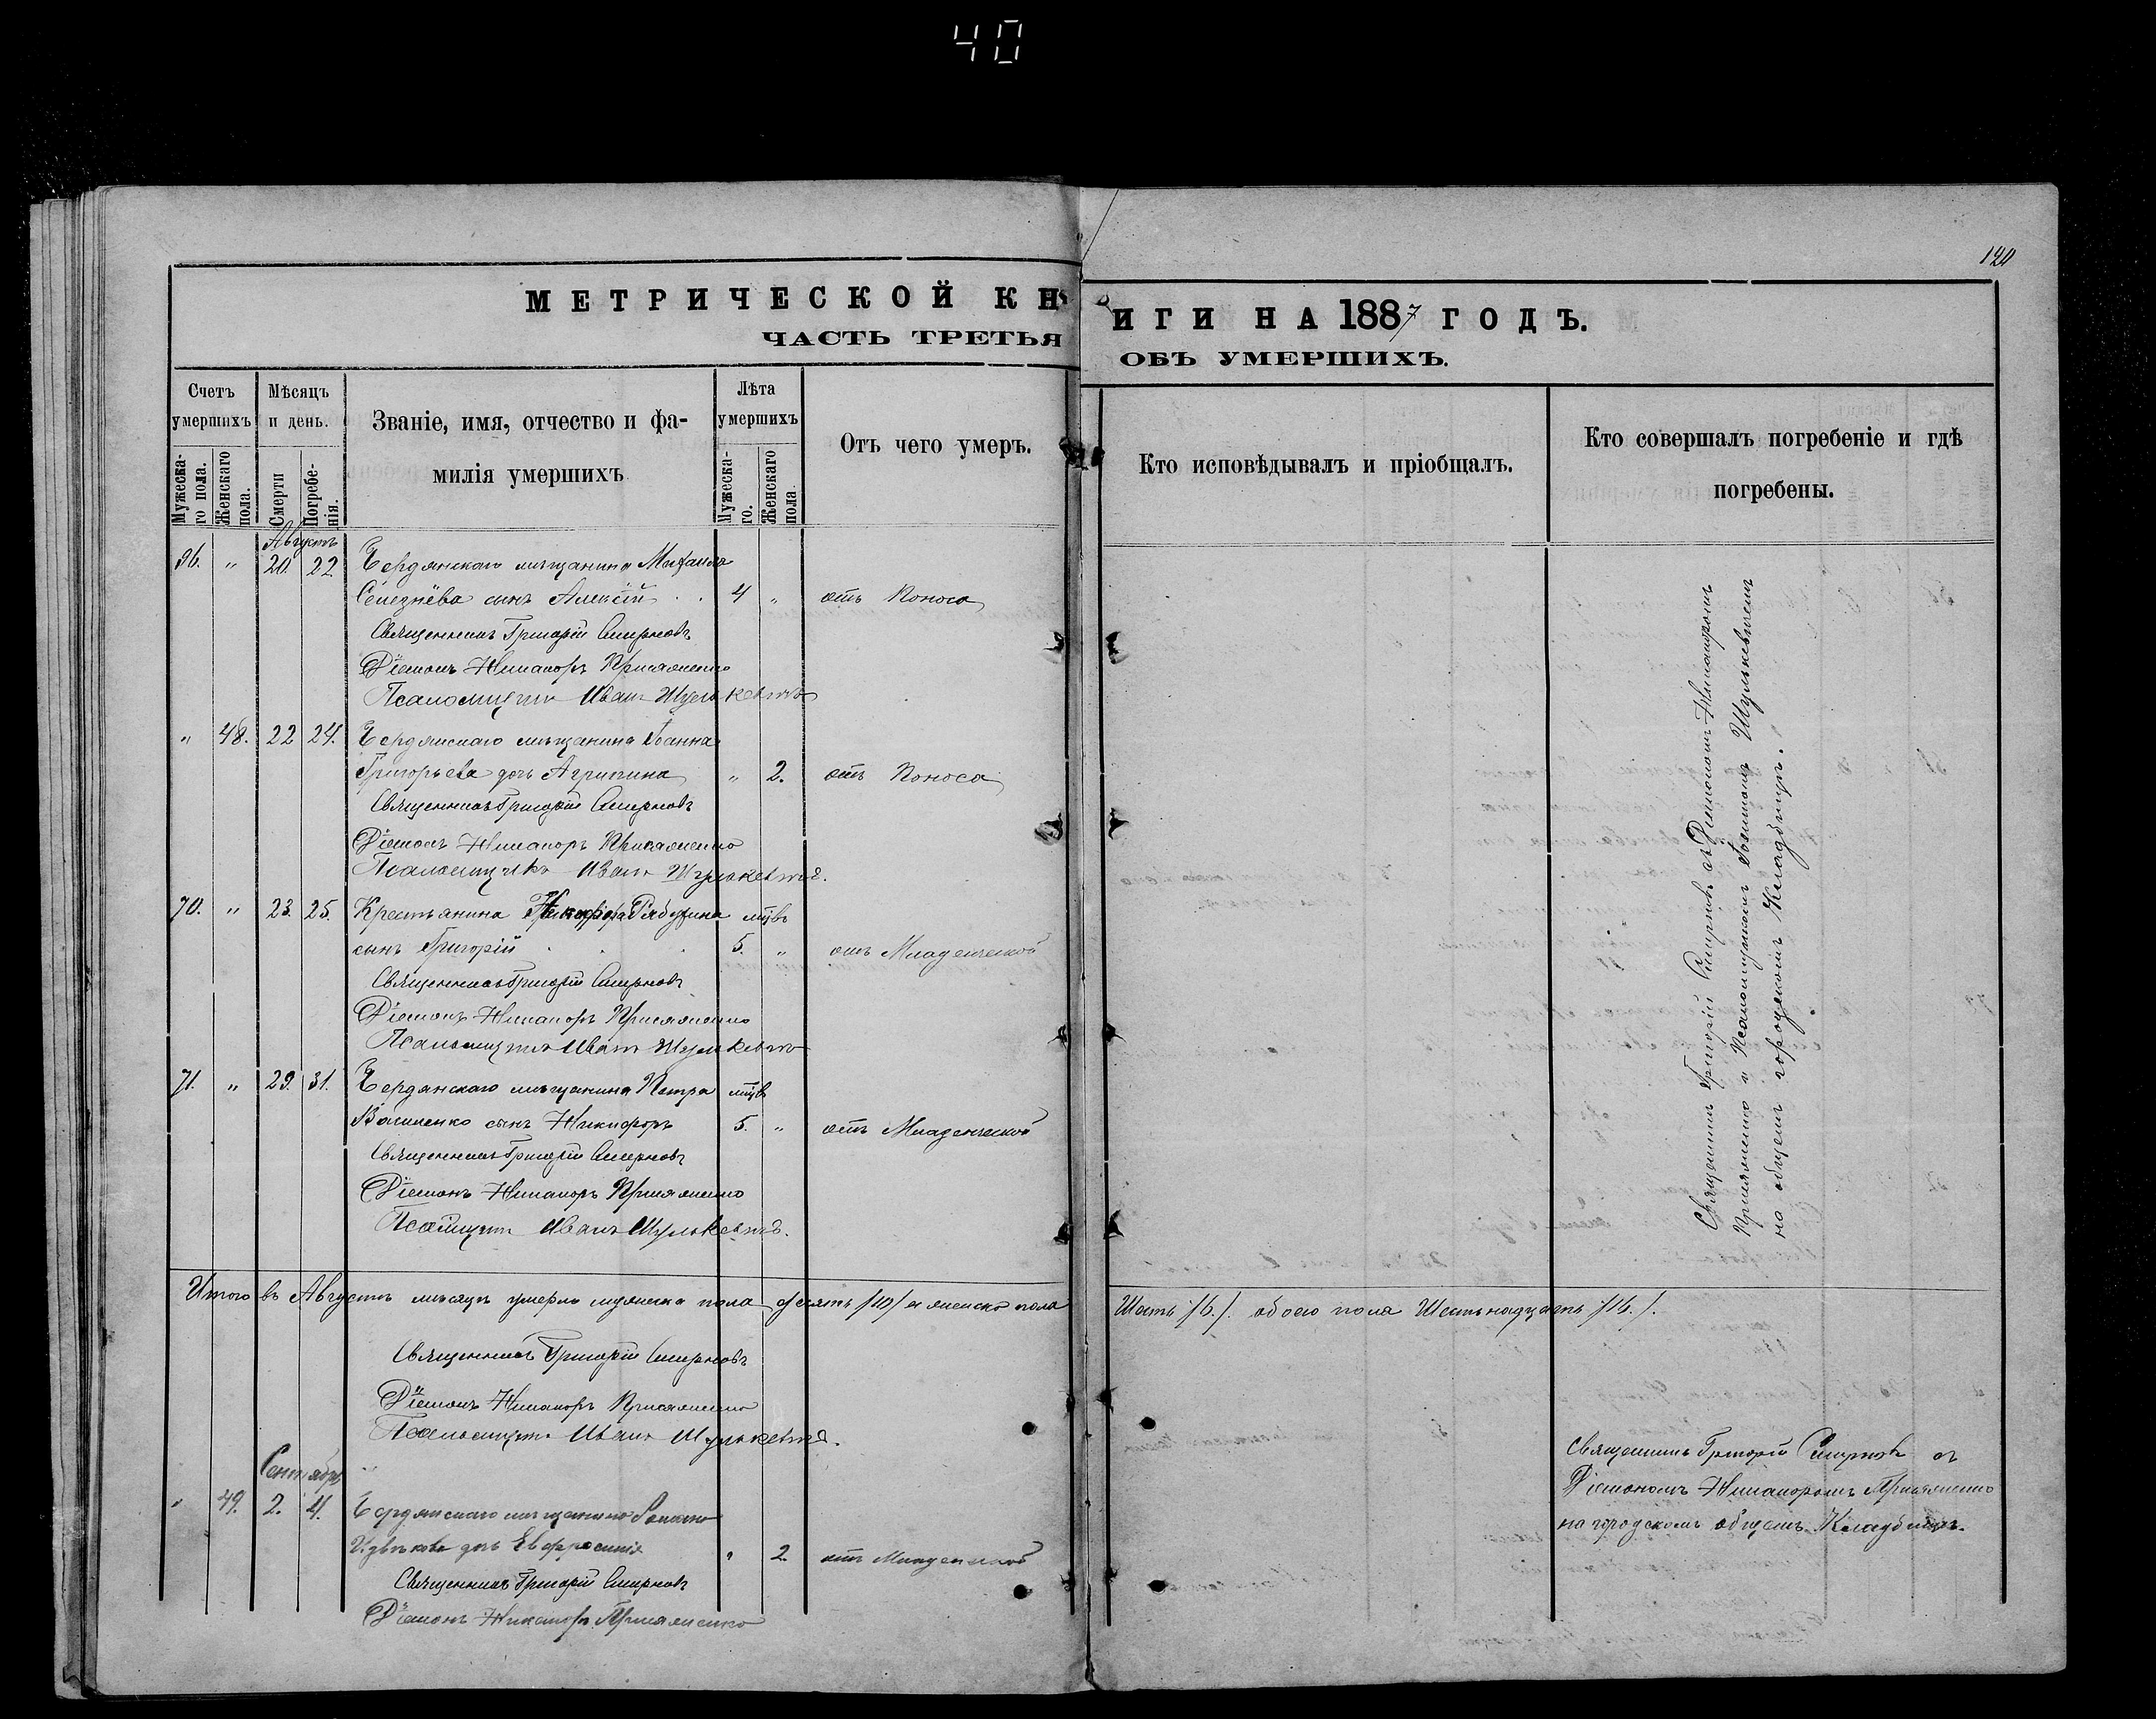 40
120
МЕТРИЧЕСКОЙ КНИГИ НА 1887 ГОДЪ.
ЧАСТЬ ТРЕТЬЯ ОБЪ УМЕРШИХЪ.
Счетъ умершихъ
Мужеска-го пола.
Женскаго пола.
Мѣсяцъ и день.
Смерти
Погребе-нія.
Званіе, имя, отчество и фа-
милія умершихъ
Лѣта умершихъ
Мужеска-го.
Женскаго пола
Отъ чего умеръ.
Кто исповѣдывалъ и пріобщалъ.
Кто совершалъ погребеніе и гдѣ
погребены.
Августъ
" 20. 22 Бердянскаго мѣщанина Михаила
Селезнёва сынъ Алексѣй 4 " отъ Поноса
Священникъ Григорій Смирновъ
Діаконъ Никаноръ Присяженко
Псаломщикъ Иванъ Шулькевичъ
" 48. 22 24. Бердянскаго мѣщанина Іоанна
Григорьева дочь Агрипина " 2. отъ Поноса
Священникъ Григорій Смирновъ
Діаконъ Никаноръ Присяженко
Псаломщикъ Иванъ Шулькевичъ.
70. " 23. 25. Крестьянина мцвъ
сынъ Григорій 5. " отъ Младенческой
Священникъ Григорій Смирновъ
Діаконъ Никаноръ Присяженко
Псаломщикъ Иванъ Шулькевичъ
71. " 29. 31. Бердянскаго мѣщанина Петра мцвъ
Василенко сынъ Никифоръ 5. " отъ Младенческой
Священникъ Григорій Смирновъ
Діаконъ Никаноръ Присяженко
Псаломщикъ Иванъ Шулькевичъ.
Священникъ Григорій Смирновъ съ Діакономъ Никаноромъ
Присяженко и Псаломщикомъ Іоанномъ Шулькевичемъ
на общемъ городскомъ Кладбищѣ.
Итого въ Августѣ мѣсяцѣ умерло мужеска пола десять /10/ и женска пола Шесть /6./. обоего пола Шестьнадцать /16./.
Священникъ Григорій Смирновъ
Діаконъ Никаноръ Присяженко
Псаломщикъ Иванъ Шулькевичъ.
Сентябрь
" 49. 2. 4. Бердянскаго мѣщанина
дочь Евфросинія " 2. отъ Младенческой
Священникъ Григорій Смирновъ
Діаконъ Никаноръ Присяженко
Священникъ Григорій Смирновъ съ
Діакономъ Никаноромъ Присяженко
на городскомъ общемъ Кладбищѣ.